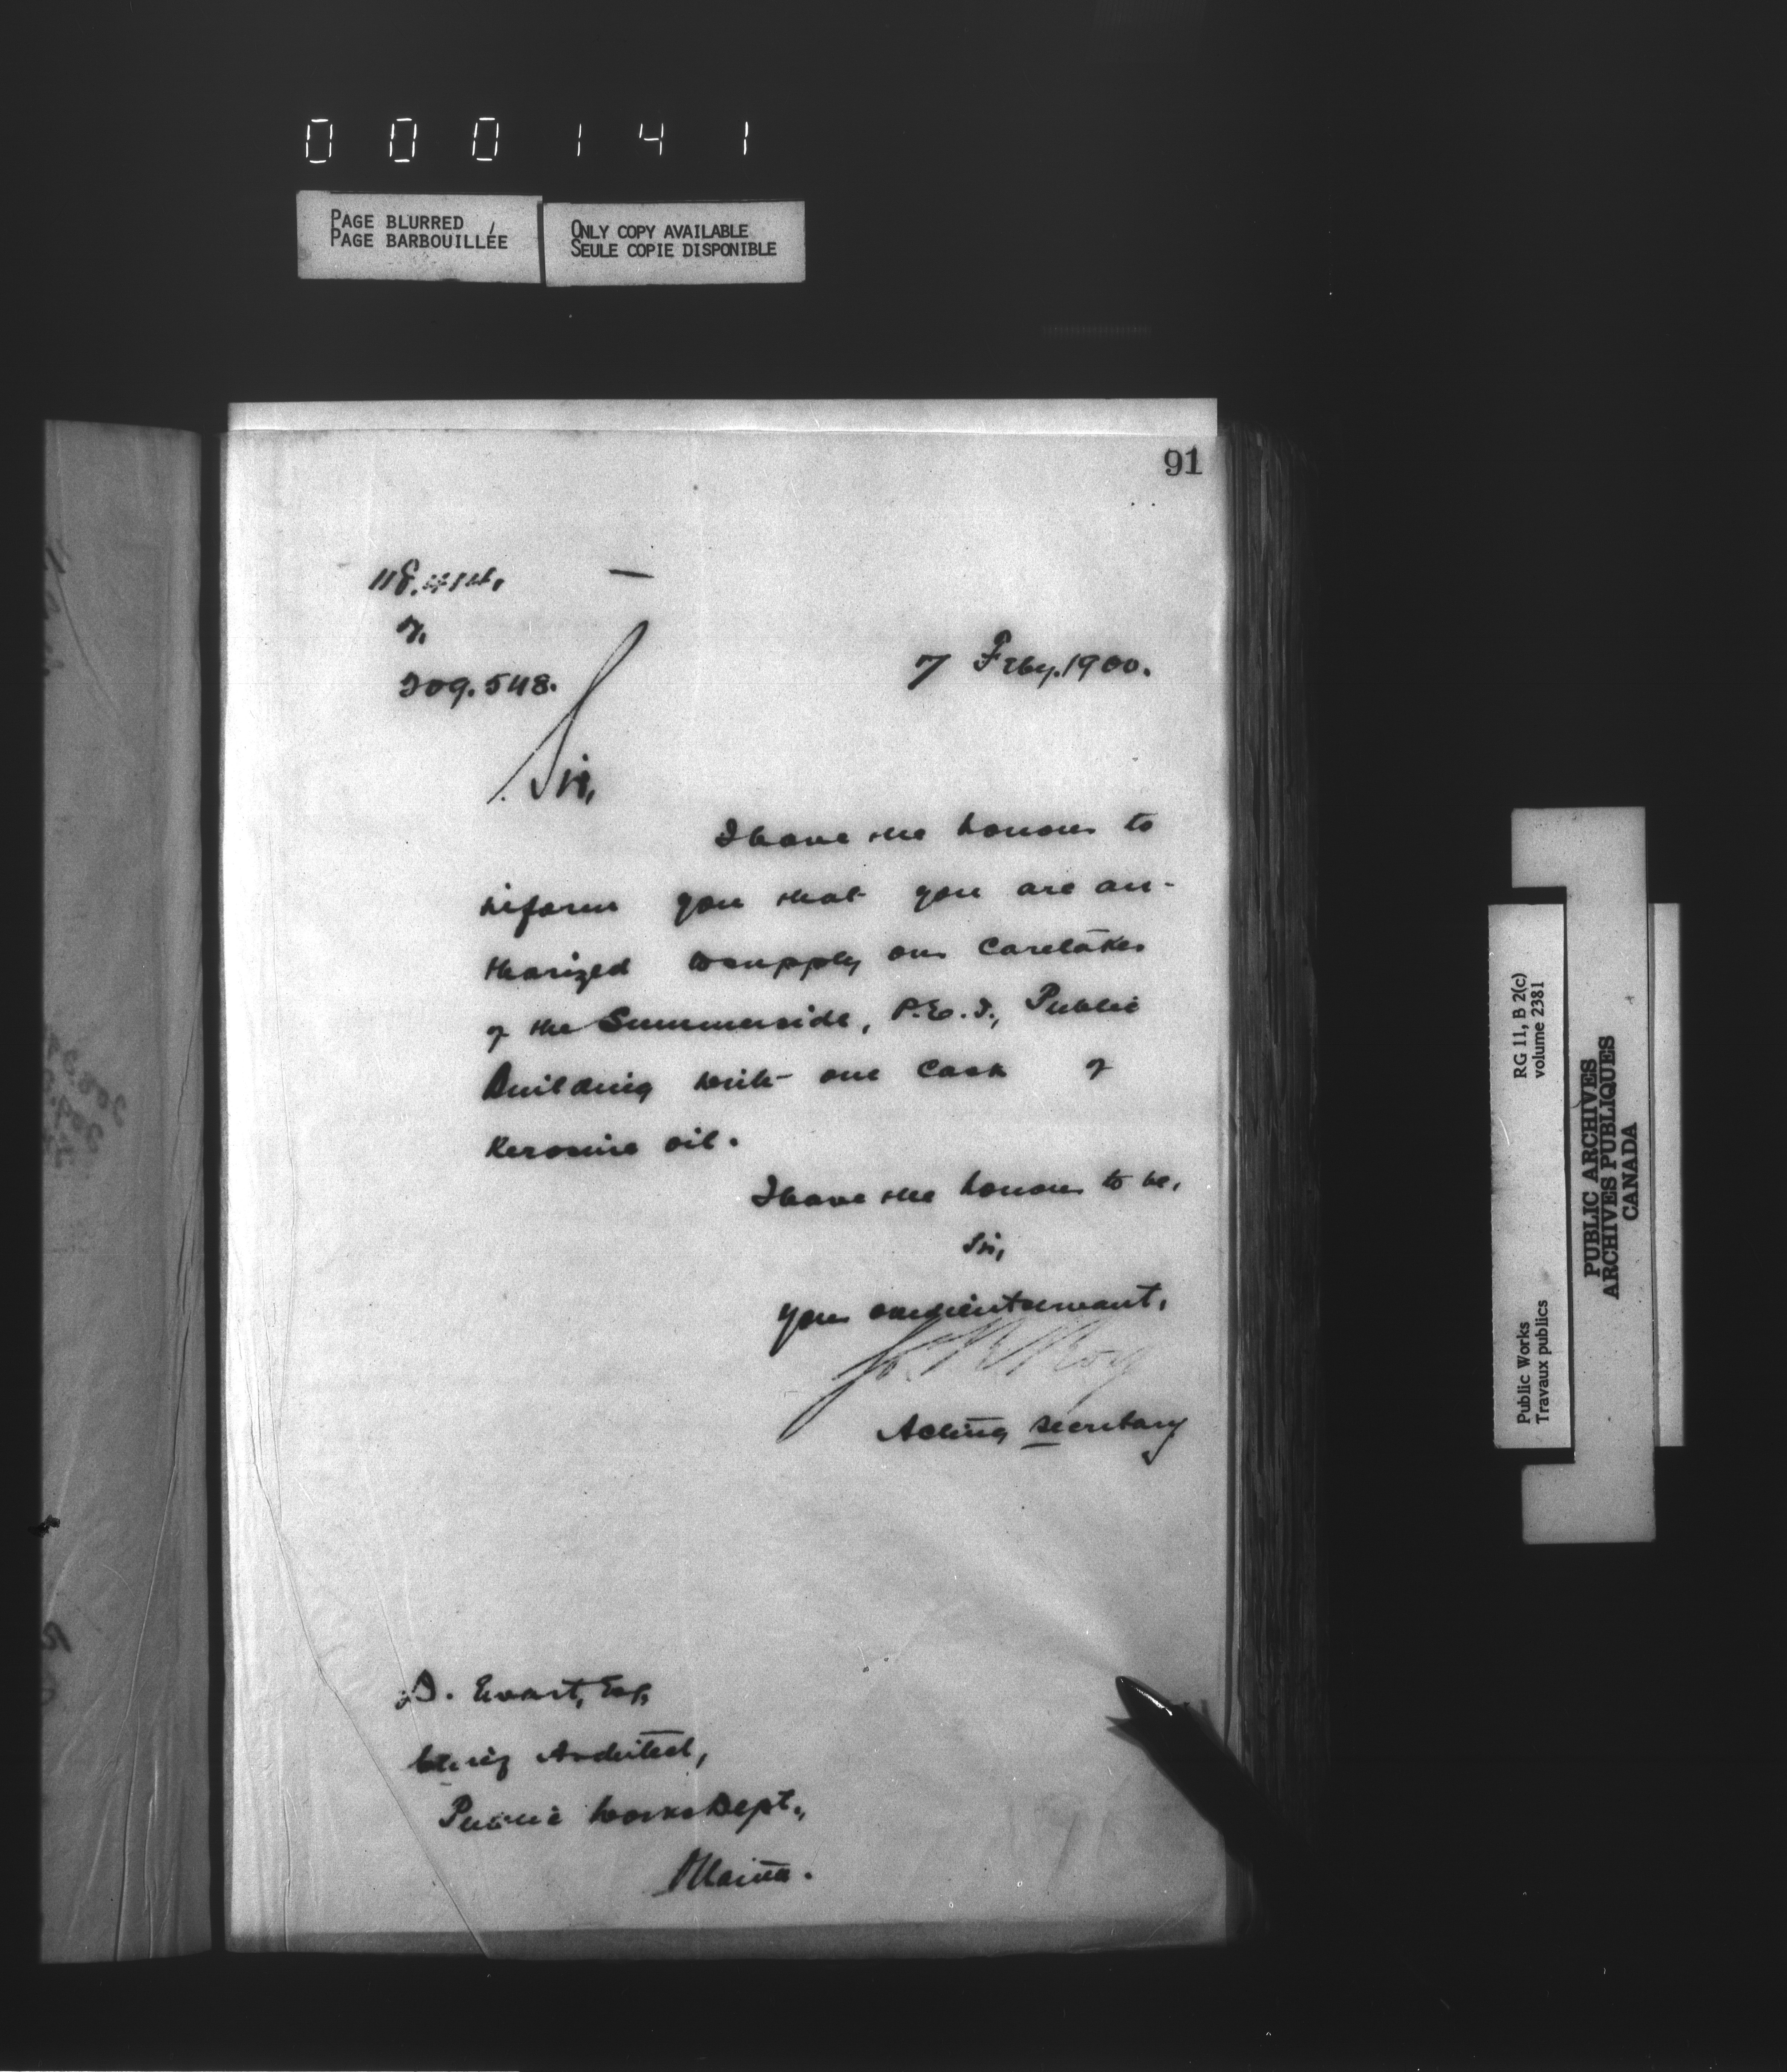 000141
PAGE BLURRED
PAGE BARBOUILLÉE
ONLY COPY AVAILABLE
SEULE COPIE DISPONIBLE
91
7.
209.548.
7 Feby. 1900.
Sir,
I have the honour to
inform you that you are au-
thorized to supply our Caretaker
of the Summerside, P.E.I., Public
Building with one Cask of
Kerosine oil.
I have the honour to be,
Sir,
Your obedient servant,
Jos. R. Roy
Acting Secretary
D. Ewart, Esq,
Chief Architect,
Public Works Dept.,
Ottawa.
RG 11, B 2(c)
volume 2381
Public Works
Travaux publics
PUBLIC ARCHIVES
ARCHIVES PUBLIQUES
CANADA